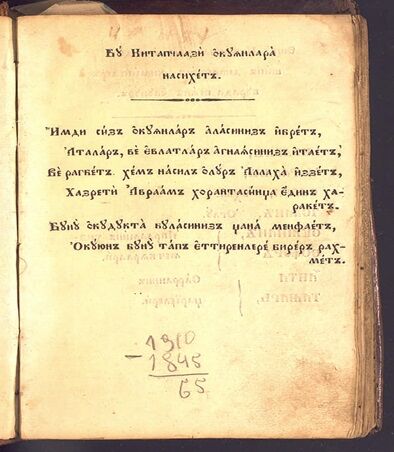 Бꙋ Китапчлази́ ѻкꙋжилара̀
насихе́тъ.
И́мди си́зъ ѻкꙋжила́ръ а́ласинизъ и҆бре́тъ,
А҆тала́ръ, вѐ е҆влатла́ръ а҆гнѧ́синизъ и҆тае́тъ,
Вѐ рагбе́тъ. хе́мъ на́силъ ѻлꙋ́ръ А҆ллаха̀ и҆ззе́тъ,
Хазретѝ А҆враа́мъ хорантаси́нца є҆ди́нъ ха-
раке́тъ.
Бꙋнꙋ̀ ѻкꙋдꙋкта̀ бꙋ́ласинизъ џана̀ менфае́тъ,
Ѻкꙋю́нъ бꙋнꙋ̀ та́пъ е҆ттиренлерѐ бире́ръ рах-
ме́тъ.
1910
- 1845
65